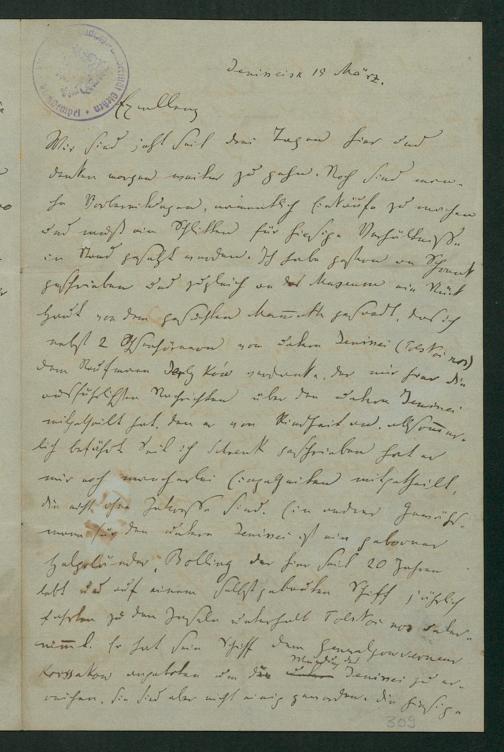 Jenisseisk 19 März.
Excellenz
Wir sind jetzt seit drei Tagen hier und
denken morgen weiter zu gehn. Noch sind man-
che Vorbereitungen, namentlich Einkäufe zu machen
und muss ein Schlitten für hiesige Verhältnisse
in Stand gesetzt werden. Ich habe gestern an Schrenk
geschrieben und zugleich an das Museum ein Stück
Haut von dem gesuchten Mammuth gesandt, das ich
nebst 2 von untern Jenissei (Tolstoi nos)
dem Kaufmann verdanke, der mir hier die
ausführlichsten Nachrichten über den untern Jenissei
mitgetheilt hat, den er von Kindheit an allsommer-
lich befährt. Seit ich Schrenk geschrieben hat er
mir noch mancherlei Einzelheiten mitgetheilt,
die nicht ohne Interesse sind. Ein andrer Gewährs-
mann für den untern Jenissei ist ein geborner
Helgoländer, Bolling der hier seit 20 Jahren
lebt und auf einem selbstgebauten Schiff jährlich
Fahrten zu den Inseln unterhalb Tolstoi nos unter-
nimmt. Er hat sein Schiff dem Generalgouverneur
Korssakow angeboten um die Mündung des Jenissei zu er-
reichen, sie sind aber nicht einig geworden. Die hiesige
309